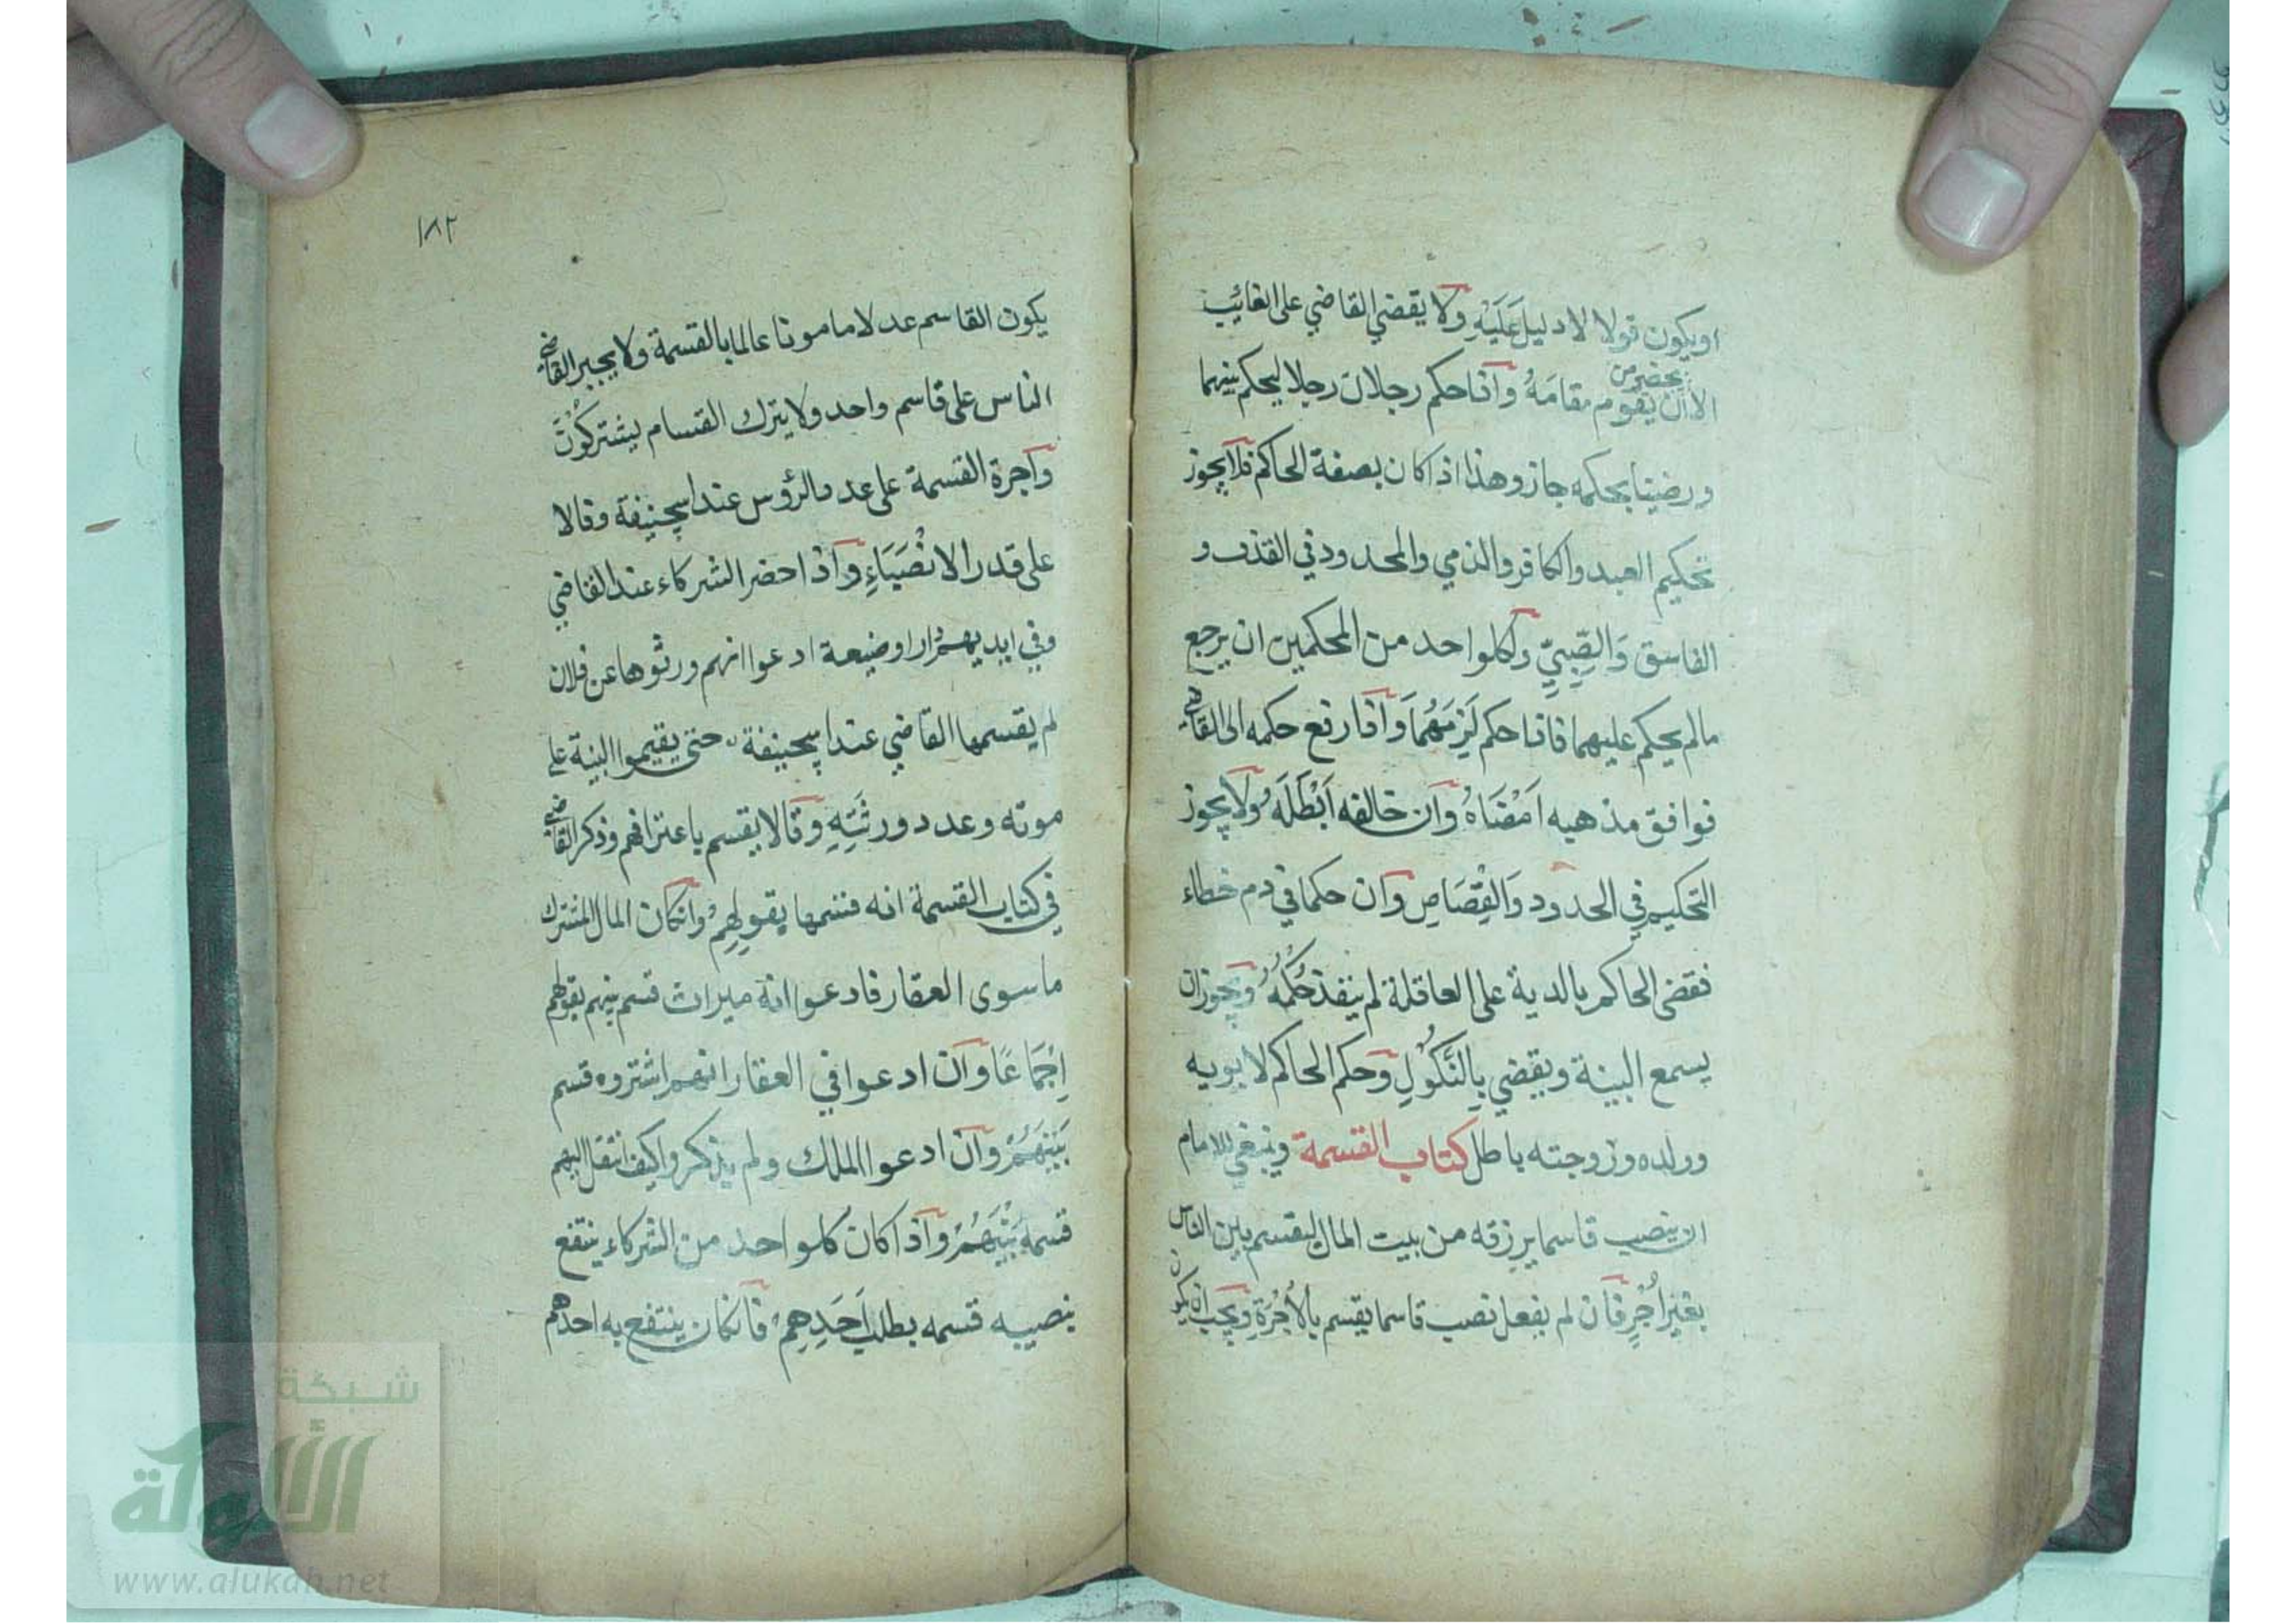 اويكون قولا لا دليل عَلَيْهِ ولا يقضي القاضي على الغائب
يحضر من
الا ان يقوم مقامَهُ واذا حكم رجلان رجلا ليحكم بينهما
ورضيا بحكمه جاز وهذا اذا كان بصفة الحاكم فلا يجوز
تحكيم العبد والكافر والذمي والمحدود في القذف و
الفاسق وَالصَّبِيِّ ولكلواحد من المحكمين ان يرجع
مالم يحكم عليهما فاذا حكم لَزِمَهُمَا واذا رفع حكمه الى القاضي
فوافق مذهبه اَمْضَاهُ وان خالفه اَبْطَلَهُ ولا يجوز
التحكيم في الحدود وَالْقِصَاصِ وان حكما في دم خطاء
فقضى الحاكم بالدية على العاقلة لم ينفذ حُكْمُهُ ويجوز ان
يسمع البينة ويقضي بِالنُّكُولِ وحكم الحاكم لابويه
وولده وزوجته باطل كتاب القسمة وينبغي للامام
ان ينصب قاسما يرزقه من بيت المال ليقسم بين الناس
بغير اُجْرٍ فان لم يفعل نصب قاسما يقسم بِالْاُجْرَةِ ويجب ان يكون
١٨٢
يكون القاسم عدلا مامونا عالما بالقسمة ولا يجبر القاضي
الناس على قاسم واحد ولا يترك القسام يشتركُوْنَ
واجرة القسمة على عدد الرؤس عند ابيحنيفة وقالا
على قدر الانْصِبَاءِ واذا حضر الشركاء عند القاضي
وفي ايديهم دار او ضيعة ادعوا انهم ورثوها عن فلان
لم يقسمها القاضي عند ابيحنيفة حتى يقيموا البينة على
موته وعدد ورثَتِهِ وقالا يقسم باعترافهم وذكر القاضي
في كتاب القسمة انه قسمها بقولِهِمْ وانكان المال المشترك
ما سوى العقار فادعوا انه ميراث قسم بينهم بقولهم
اِجْمَاعًا وان ادعوا في العقار انهم اشتروه قسم
بَيْنَهُمْ وان ادعوا الملك ولم يذكروا كيف انتقل اليهم
قسمه بَيْنَهُمْ واذا كان كلواحد من الشركاء ينتفع
بنصيبه قسمه بطلب اَحَدِهِمْ فانكان ينتفع به احدهم
شبكة
الألوكة
www.alukah.net